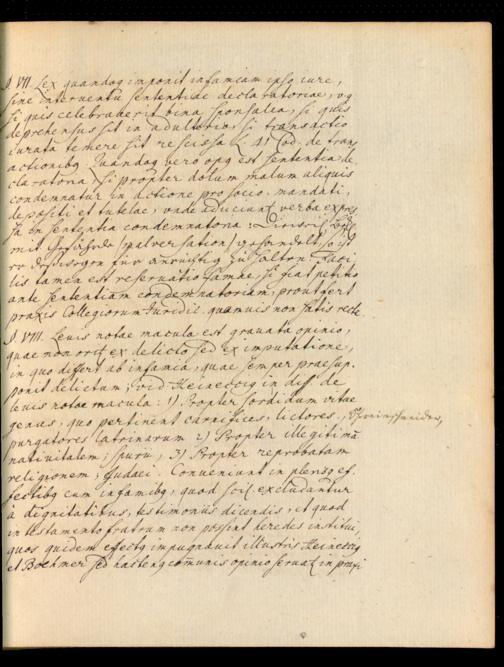 §. VII. Lex quandoq imponit infamiam ipso iure,
sine interventu sententiae declaratoriae, vg
si quis celebraverit bina sponsalia, si quis
deprehensus sit in adulterio, si transactio
iurata temere sit rescissa L. 41 Cod. de tran
actionibq. Quandoq vero opq est sententia de
claratoria si propter dolum malum aliquis
condemnatur in actione pro socio, mandati,
depositi et tutelae, unde adiiciunt verba expres
sa in sententia condemnatoria:
mit (malversation) gehandelt, so ist
er deßwegen für anrüchtig zu halten. Faci
lis tamen est reservatio famae, si fiat petitio
ante sententiam condemnatoriam, prout fert
praxis Collegiorum Iuridic. quamvis non satis recte
§. VIII. Levis notae macula est gravata opinio,
quae non orit ex delicto sed ex imputatione,
in quo differt ab infamia, quae semper praesup-
ponit delictum; vid Heineccig in diss. de
levis notae macula: 1) Propter sordidum vitae
genus, quo pertinent carnifices, lictores,
purgatores latrinarum 2) Propter illegitimā
nativitatem; spurii, 3) Propter reprobatam
religionem; Judaei. Conveniunt in plerisq ef-
fectibq cum infamibq, quod scil. excludantur
à dignitatibus, testimoniis dicendis, et quod
in testamento fratrum non possint heredes institui,
quos quidem effectq impugnavit illustris Heineccig
et Boehmer sed hactenq comunis opinio servat in praxi